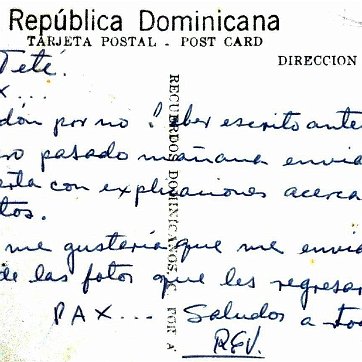 República Dominicana
TARJETA POSTAL - POST CARD
DIRECCION
Teté.
X...
dón por no haber escrito ante
ro pasado mañana envia
erta con explicaciones acerca
tos.
me gustaria que me envia
de las fotos que les regresar
PAX... Saludos a to
REV.
RECUERDOS DOMINICANOS, C. POR A